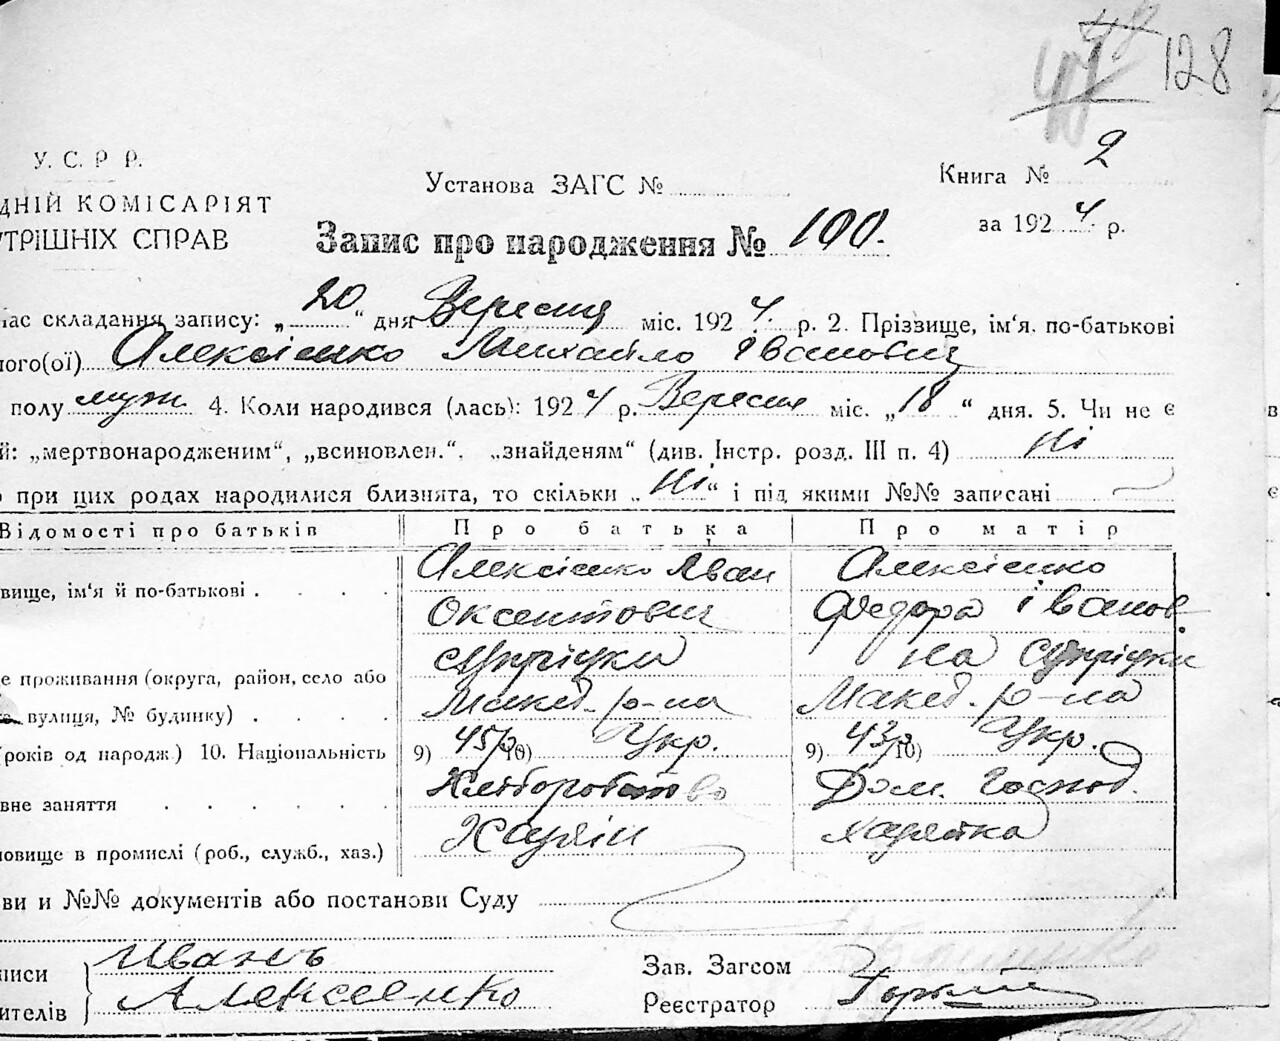 128
У. С. Р Р.
Установа ЗАГС №
Книга № 2
ДНІЙ КОМІСАРІЯТ
за 1924 р.
ТРІШНІХ СПРАВ
Запис про народження № 100.
час складання запису: „20“ дня Вересня міс. 1924 р. 2. Прізвище, ім‘я. по-батькові
ного(ої) Алексієнко Михайло Іванович
полу муж 4. Коли народився (лась): 1924 р. Вересня міс. „18“ дня. 5. Чи не є
й: „мертвонародженим“, „всиновлен.“. „знайденям“ (див. Інстр. розд. III п. 4) Ні
при цих родах народилися близнята, то скільки „Ні“ і під якими №№ записані —
Відомості про батьків Про батька Про матір
Алексієнко Иван Алексієнко
звище, ім‘я й по-батькові . . . .
Оксентович Федора Іванов
на
е проживання (округа, район, село або
Макед. р-на Макед. р-на
вулиця, № будинку) . . . .
(років од народж.) 10. Національність 9) 45 р 10) Укр. 9) 43 р 10) Укр.
вне заняття . . . . . . Хліборобство Дом. Господ.
новище в промислі (роб., служб., хаз.) Хазяін хазяйка
ви и №№ документів або постанови Суду
писи Иванъ Зав. Загсом
ителів Алексеенко Реєстратор